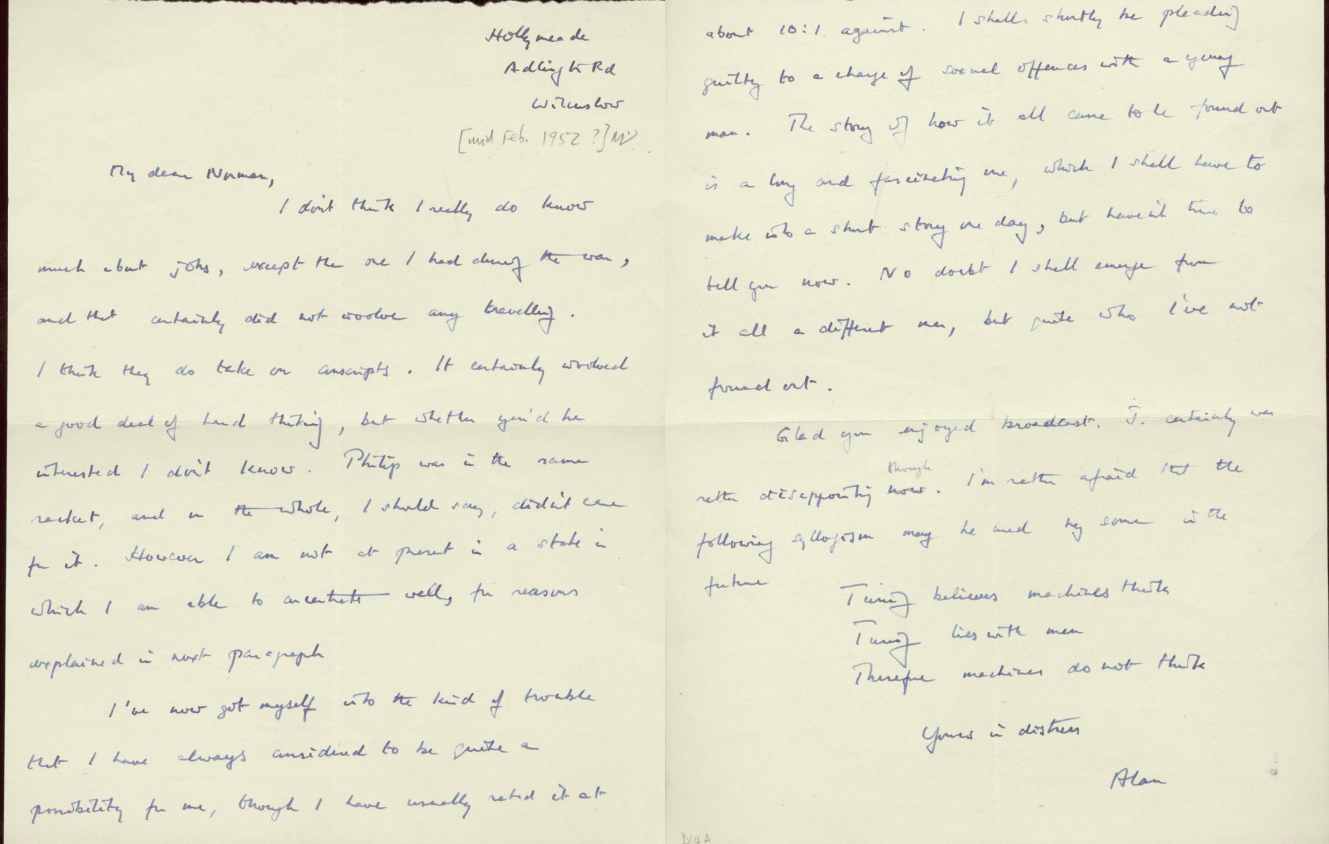 Hollymeade
Adlington Rd
Wilmslow
[mid Feb. 1952 ?]
My dear Norman,
I don't think I really do know
much about jobs, except the one I had during the war,
and that certainly did not involve any travelling.
I think they do take on conscripts. It certainly involved
a good deal of hard thinking, but whether you'd be
interested I don't know. Philip was in the same
racket, and on the whole, I should say, didn't care
for it. However I am not at present in a state in
which I am able to concentrate well, for reasons
explained in next paragraph
I've now got myself into the kind of trouble
that I have always considered to be quite a
possibility for me, though I have usually rated it at
about 10:1 against. I shall shortly be pleading
guilty to a charge of sexual offences with a young
man. The story of how it all came to be found out
is a long and fascinating one, which I shall have to
make into a short story one day, but haven't time to
tell you now. No doubt I shall emerge from
it all a different man, but quite who I've not
found out.
Glad you enjoyed broadcast. J. certainly was
rather disappointing though now. I'm rather afraid that the
following syllogism may be used by some in the
future
Turing believes machines think
Turing lies with men
Therefore machines do not think
Yours in distress
Alan